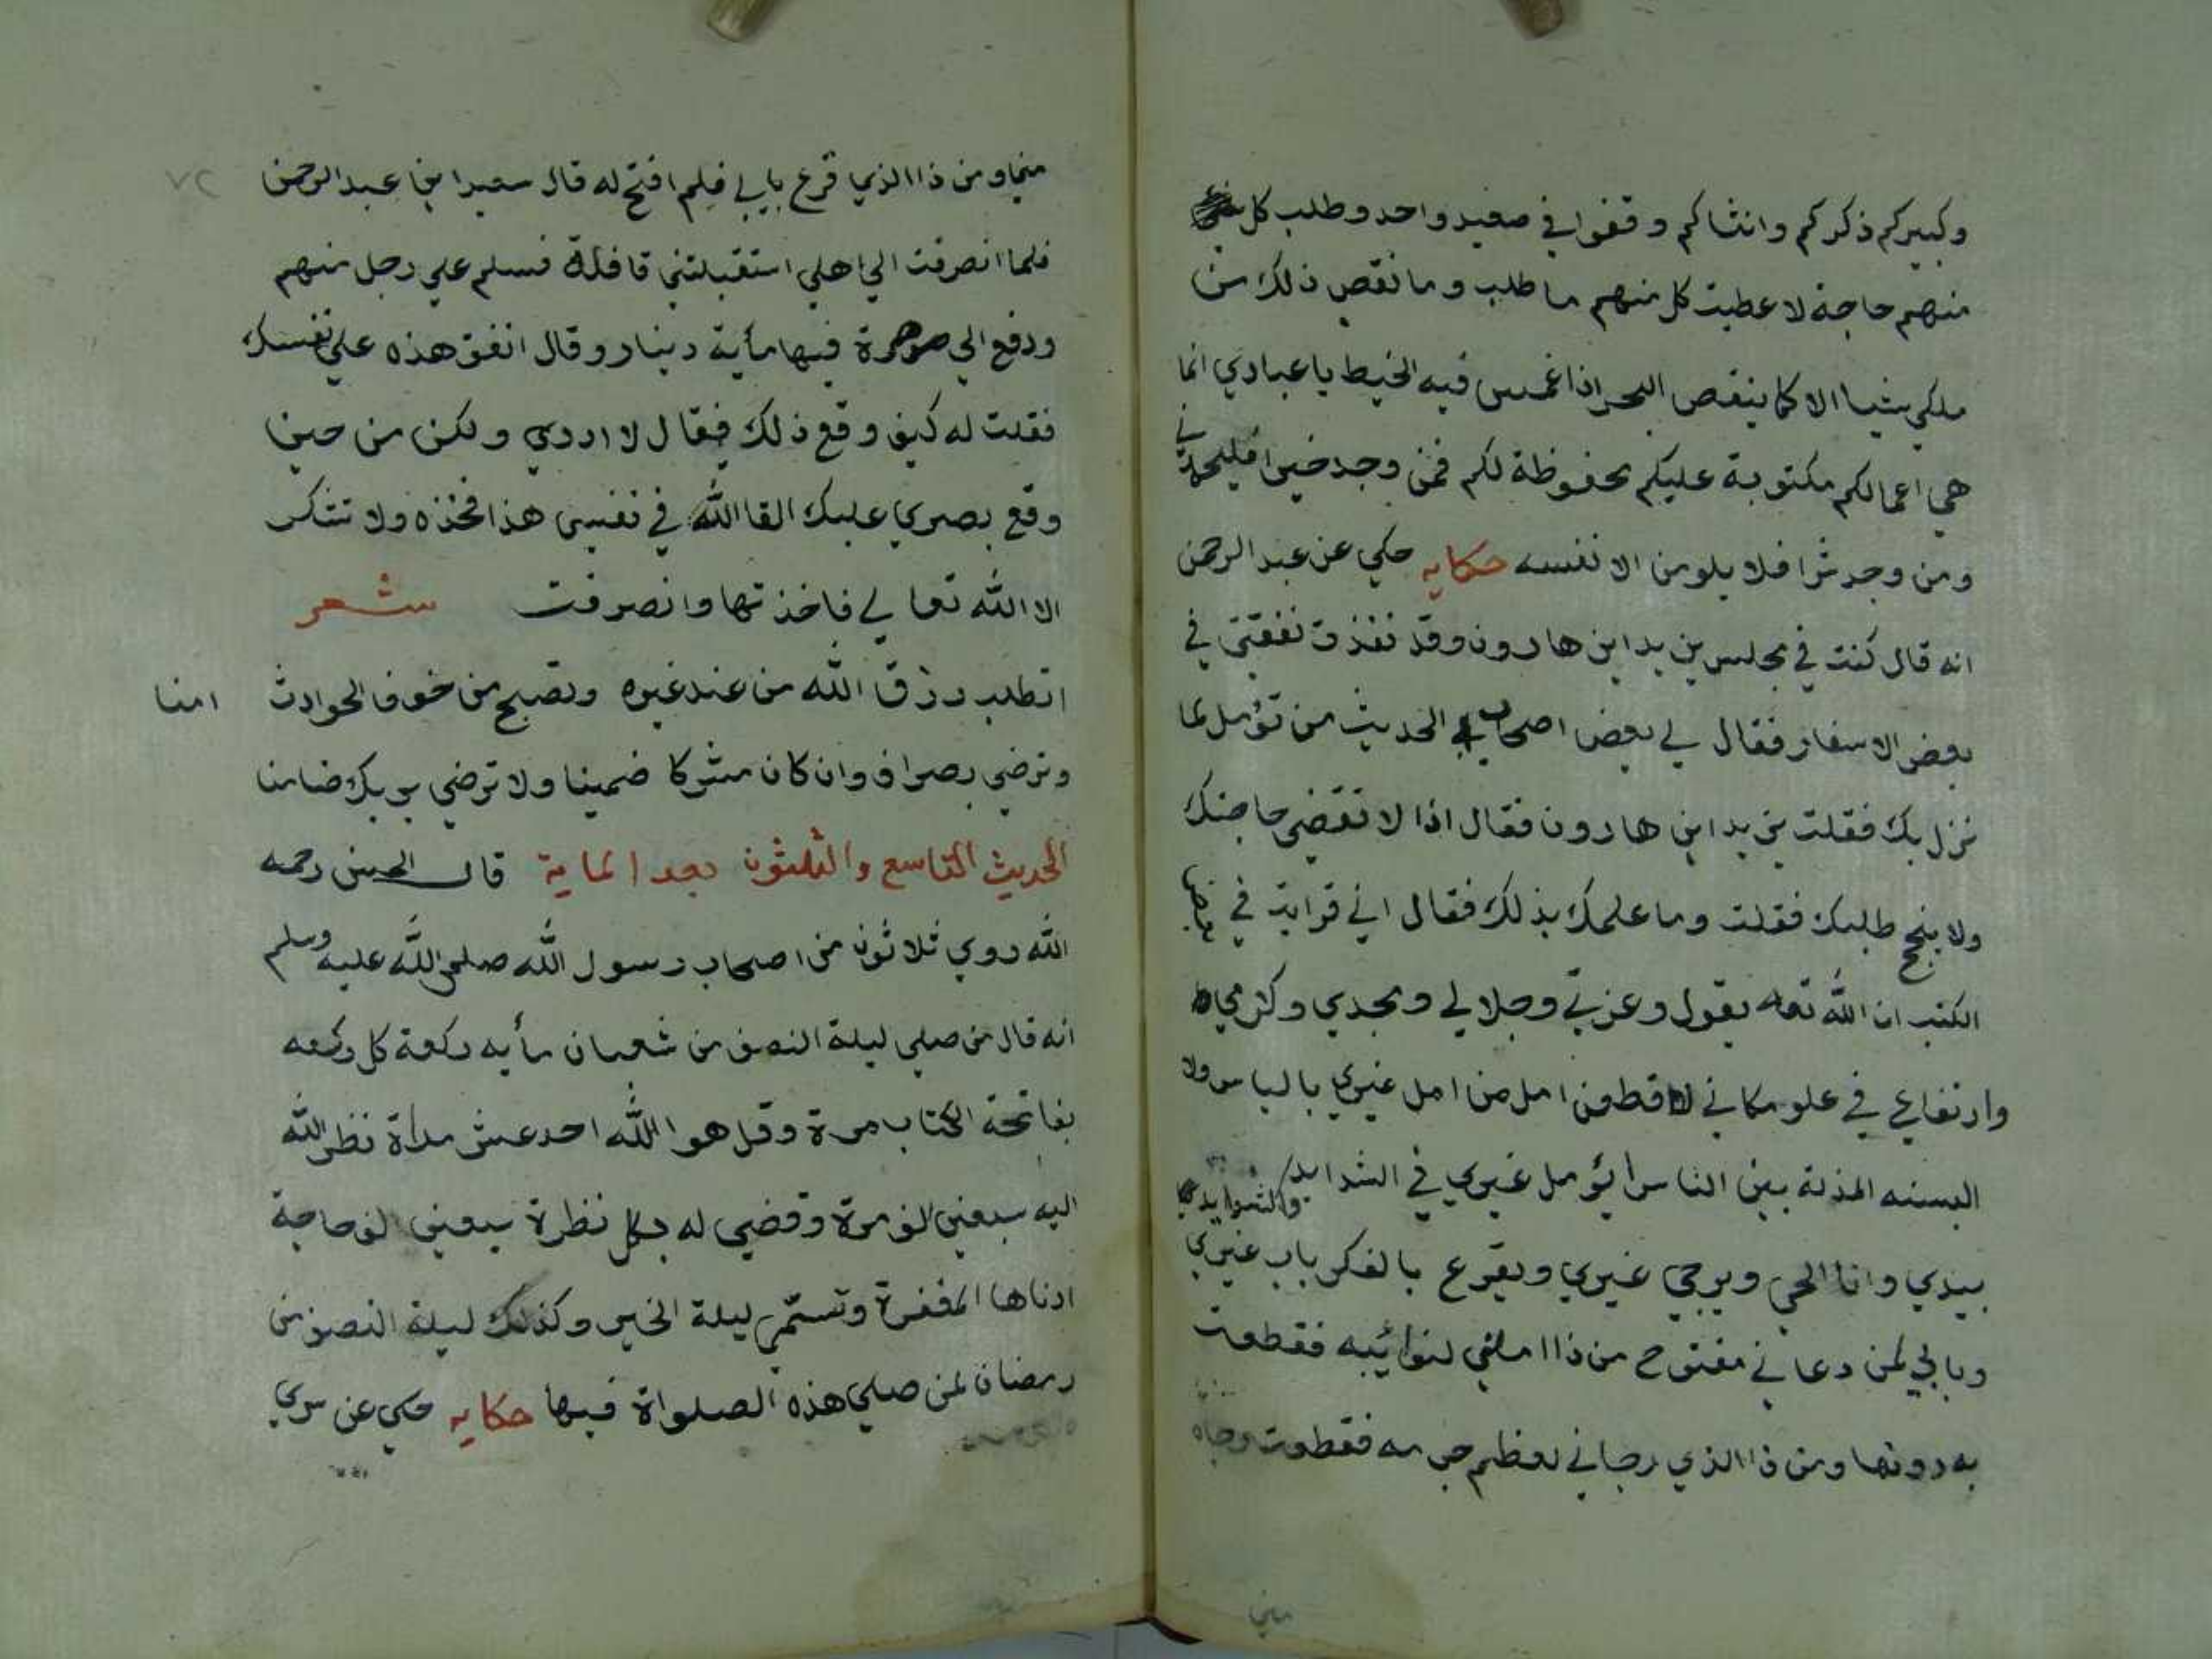 وكبيركم ذكركم وانثاكم وقفوا في صعيد واحد وطلب كل
منهم حاجة لاعطيت كل منهم ما طلب وما نقص ذلك من
ملكي شيا الا كما ينقص البحر اذا غمس فيه الخيط يا عبادي انما
هي اعمالكم مكتوبة عليكم محفوظة لكم فمن وجد خيرا فليحمدني
ومن وجد شرا فلا يلومن الا نفسه حكايه حكي عن عبد الرحمن
انه قال كنت في مجلس يزيد ابن هارون وقد نفذت نفقتي في
بعض الاسفار فقال لي بعض اصحاب الحديث من تؤمل لما
نزل بك فقلت يزيد ابن هارون فقال اذا لا تقضي حاجتك
ولا ينجح طلبك فقلت وما علمك بذلك فقال اني قرايت في بعض
الكتب ان الله تعه يقول وعزتي وجلالي ومجدي وكرمي
وارتفاعي في علو مكاني لاقطعن امل من امل غيري بالياس ولا
البسنه المذلة بين الناس ايؤمل غيري في الشدايد والشدايد
بيدي وانا الحي ويرجي غيري ويقرع بالفكر باب غيري
وبابي لمن دعاني مفتوح من ذا املني لنوائبه فقطعت
به دونها ومن ذا الذي رجاني لعظم جرمه فقطعت رجاه
مني
٧٢
مني ومن ذا الذي قرع بابي فلم افتح له قال سعيد ابن عبد الرحمن
فلما انصرفت الي اهلي استقبلتني قافلة فسلم علي رجل منهم
ودفع الي صرة فيها مأية دينار وقال انفق هذه علي نفسك
فقلت له كيف وقع ذلك فقال لا ادري ولكن من حين
وقع بصري عليك القا الله في نفسي هذا فخذه ولا تشكر
الا الله تعالي فاخذتها وانصرفت شعر
اتطلب رزق الله من عند غيره وتصبح من خوف الحوادث امنا
وترضي بصراف وان كان مشركا ضمينا ولا ترضي بربك ضامنا
الحديث التاسع والثلثون بعد الماية قال الحسن رحمه
الله روي ثلاثون من اصحاب رسول الله صلي الله عليه وسلم
انه قال من صلي ليلة النصف من شعبان مأيه ركعة كل ركعه
بفاتحة الكتاب مرة وقل هو الله احد عشر مراة نظر الله
اليه سبعين الف مرة وقضي له بكل نظرة سبعين الف حاجة
ادناها المغفرة وتسمي ليلة الخير وكذلك ليلة النصف من
رمضان لمن صلي هذه الصلواة فيها حكايه حكي عن سري